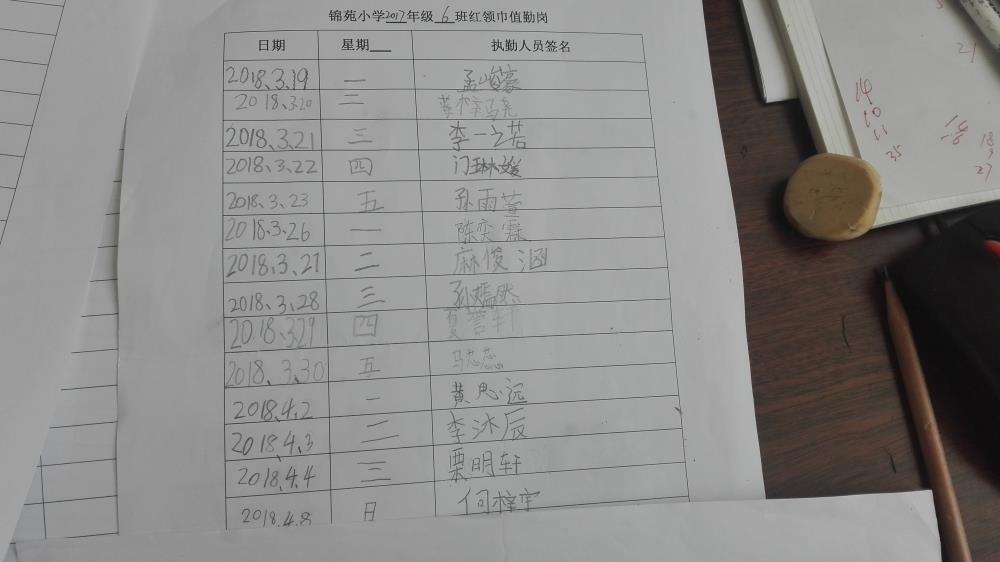 锦苑小学2017年级6班红领巾值勤岗
日期 星期 执勤人员签名
2018、3、19 一 孟峻豪
2018、3.20 二
2018、3、21 三 李一之若
2018、3、22 四 门琳媛
2018、3、23 五 孙雨萱
2018.3.26 一 陈奕霖
2018、3、27 二 麻俊涵
2018、3、28 三 孙嫣然
2018.3.29 四 夏誉轩
2018、3、30 五 马忐忑
2018、4、2 一 黄思远
2018.4、3 二 李沐辰
2018、4.4 三 栗明轩
2018.4.8 日 何梓宇
21
14
10
11
35
18
9
27